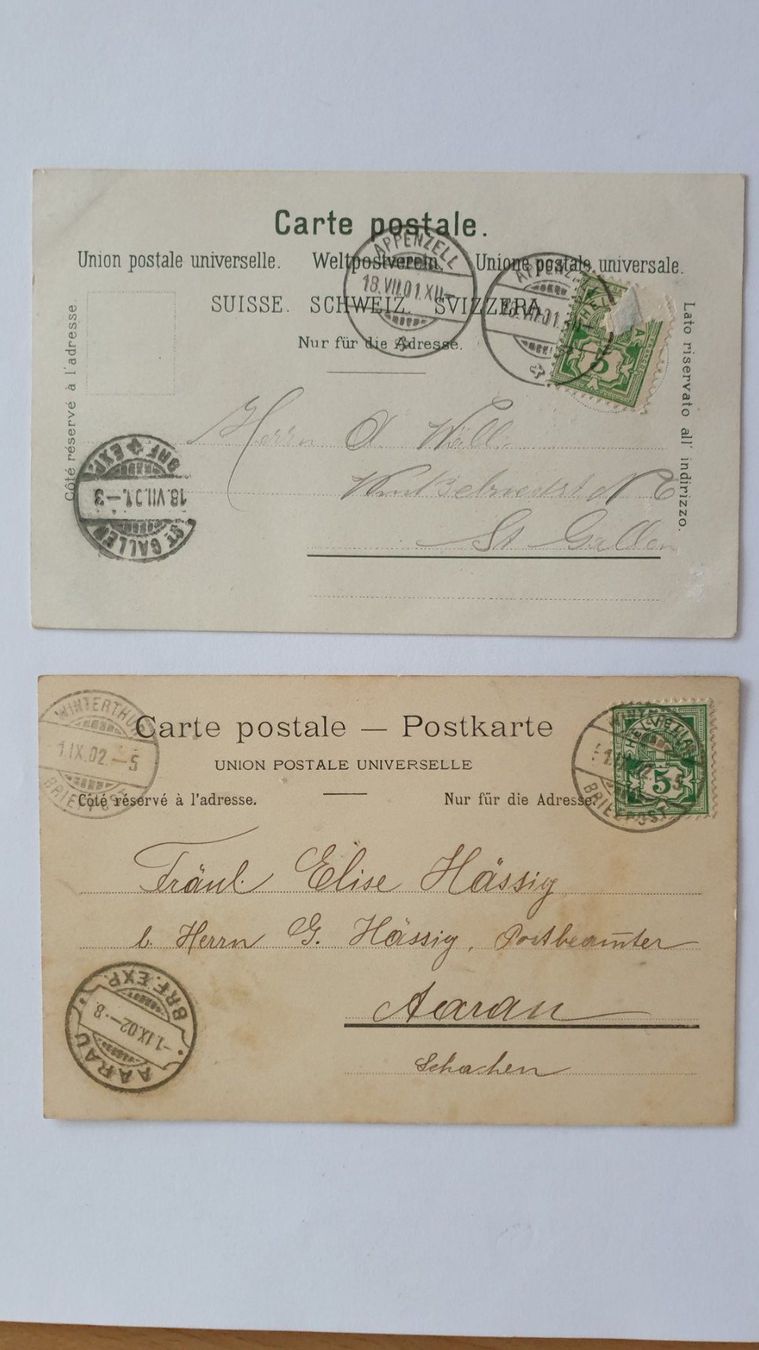 Carte postale.
Union postale universelle. Weltpostverein. Unione postale universale.
SUISSE. SCHWEIZ. SVIZZERA.
Nur für die Adresse.
Côté réservé à l'adresse
Lato riservato all' indirizzo.
APPENZELL
18.VII.01.XII–
APPENZELL
5
Herrn A.
St Gallen
BRF. EXP.
18.VII.01.–3
ST GALLEN
Carte postale — Postkarte
UNION POSTALE UNIVERSELLE
Côté réservé à l'adresse. Nur für die Adresse.
WINTERTHUR
1.IX.02.–5
BRIEFPOST
WINTERTHUR
BRIEFPOST
HELVETIA
5
Fräul. Elise Hässig
b. Herrn G. Hässig, Postbeamter
Aarau
Schachen
BRF. EXP.
–1.IX.02.–8
AARAU